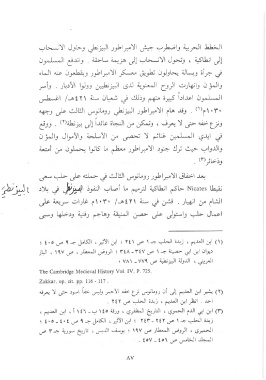 الخطط الحربية واضطرب جيش الامبراطور البيزنطي وحاول الانسحاب
إلى انطاكية ، وتحول الانسحاب إلى هزيمة ساحقة . واندفع المسلمون
في جرأة وبسالة يحاولون تطويق معسكر الامبراطور ويقطعون عنه الماء
والمؤن وانهارت الروح المعنوية لدى البيزنطيين وولوا الأدبار . وأسر
المسلمون اعداداً كبيرة منهم وذلك في شعبان سنة ٤٢١هـ/ اغسطس
١٠٣٠م(١). وقد هام الامبراطور البيزنطي رومانوس الثالث على وجهه
ونزع خفه حتى لا يعرف ، وتمكن من النجاة عائداً إلى بيزنطة(٢). ووقع
في ايدي المسلمين غنائم لا تحصى من الاسلحة والأموال والمؤن
والدواب حيث ترك جنود الامبراطور معظم ما كانوا يحملون من أمتعة
وذخائر(٣).
بعد اخفاق الامبراطور رومانوس الثالث في حملته على حلب سعى
نقيطا Nicates حاكم انطاكية لترميم ما أصاب النفوذ البيزنطي في بلاد
البيزنطي
الشام من انهيار. فشن في سنة ٤٢١هـ/ ١٠٣٠م غارات سريعة على
اعمال حلب واستولى على حصن المنيقة وهاجم رفنية ودخلها وسبى
(١) ابن العديم ، زبدة الحلب جـ ١ ص ٢٤١ ؛ ابن الأثير ، الكامل جـ ٩ ص ٤٠٥ ؛
ديوان ابن أبي حصينة جـ ١ ص ٣٤٧ - ٣٤٨ ؛ الروض المعطار ، ص ١٩٧ ، الباز
العريني ، الدولة البيزنطية ص ٧٧٩ - ٧٨١ ؛
The Cambridge Medieval History Vol. IV. P. 725.
Zakkar, op. cit. pp. 116 - 117.
(٢) يشير ابن العديم إلى أن رومانوس نزع خفه الأحمر ولبس خفاً أسود حتى لا يعرفه
احد. انظر ابن العديم ، زبدة الحلب جـ ١ ص ٢٤٢ .
(٣) ابن أبي الدم الحموي ، التاريخ المظفري ، ورقة ١٤٥ ب - ١٤٦ أ ، ابن العديم ،
زبدة الحلب جـ ١ ص ٢٤٢ - ٢٤٣ ؛ ابن الأثير ، الكامل جـ ٩ ص ٤٠٤ - ٤٠٥ ؛
الحميري ، الروض المعطار ص ١٩٧ ؛ يوسف الدبس ، تاريخ سورية جـ ٣ من
المجلد الخامس ص ٤٥٦ - ٤٥٧ .
٨٧